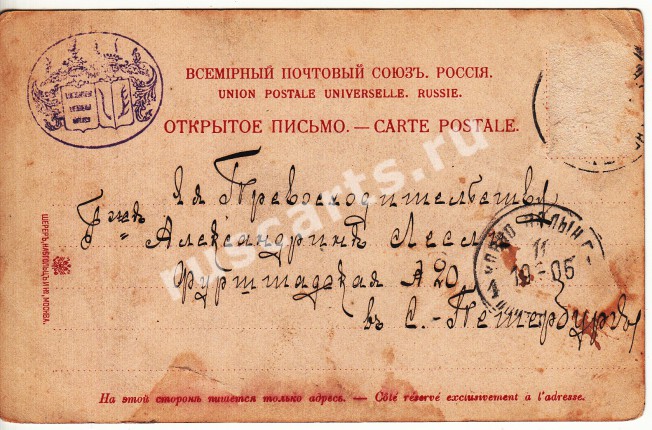 ВСЕМІРНЫЙ ПОЧТОВЫЙ СОЮЗЪ. РОССІЯ.
UNION POSTALE UNIVERSELLE. RUSSIE.
ОТКРЫТОЕ ПИСЬМО. — CARTE POSTALE.
Ея Превосходительству
Александринѣ
Фурштадская 20
въ С.-Петербургъ
11
10-05
ruscarts.ru
ШЕРЕРЪ, НАБГОЛЬЦЪ И Кº, МОСКВА.
На этой сторонѣ пишется только адресъ. — Côté réservé exclusivement à l'adresse.